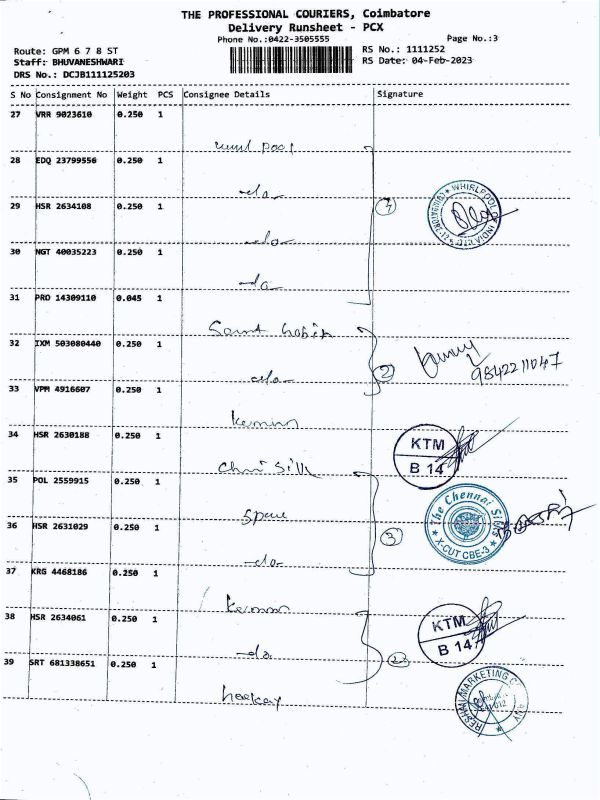 THE PROFESSIONAL COURIERS, Coimbatore
Delivery Runsheet - PCX
Phone No.:0422-3505555
Page No.:3
Route: GPM 6 7 8 ST
RS No.: 1111252
Staff: BHUVANESHWARI
RS Date: 04-Feb-2023
DRS No.: DCJB111125203
S No Consignment No Weight PCS Consignee Details Signature
27 VRR 9023610 0.250 1
28 EDQ 23799556 0.250 1
-do-
29 HSR 2634108 0.250 1
WHIRLPOOL OF INDIA LTD
-do-
30 NGT 40035223 0.250 1
-do-
31 PRO 14309110 0.045 1
32 IXM 503080440 0.250 1
2
9842211047
-do-
33 VPM 4916607 0.250 1
34 HSR 2630188 0.250 1
KTM
B 14
35 POL 2559915 0.250 1
The Chennai Silks
X-CUT CBE-3
36 HSR 2631029 0.250 1
3
-do-
37 KRG 4468186 0.250 1
38 HSR 2634061 0.250 1
KTM
B 14
-do-
39 SRT 681338651 0.250 1
RESHMI MARKETING